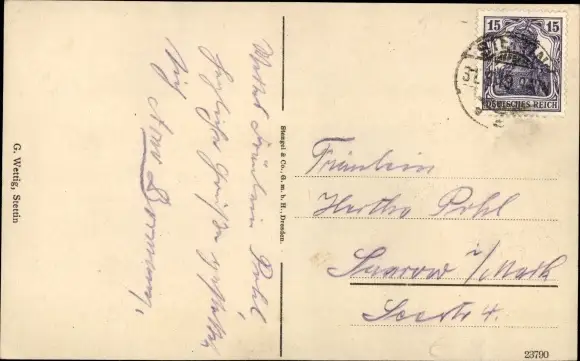 Wertes Fräulein Pohl
herzliche Grüße
G. Wettig, Stettin
Stengel & Co., G. m. b. H., Dresden.
15 15
STETTIN
DEUTSCHES REICH
Fräulein
Hertha Pohl
Saarow i/Mark
Seestr 4.
23790